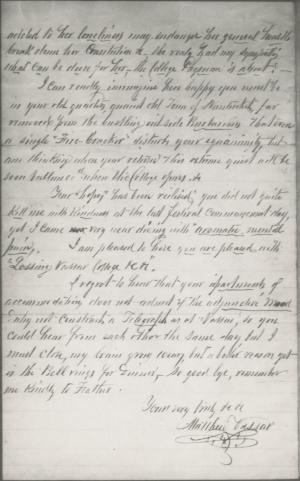 added to her loneliness may endanger her general health
break down her Constitution &c she really had my sympathy
what can be done for her — the College Physician is absent?
I can readily imagine how happy you must be
in your old quarters, quaint old Town of Nantucket, far
removed from the bustling outside
a single "Fire-Cracker" disturbs your equanimity, but
am thinking when your return? This extreme quiet will be
soon when the College opens &c
Your "hopes" has been realized, you did not quite
kill me with Kindness at the last festival Commencement day,
yet I came very near dying with "aromatic mental
pains. I am pleased to have you are pleased with
"Lossing Vassar College &c &c".
I regret to hear that your apartments of
accommodating does not admit of the adjunctive
Why not Construct a Telegraph as at Vassar, so you
could hear from each other the same day but I
must close, my brain grows weary but a better reason yet
is the Bell rings for dinner, so good bye, remember
me kindly to Father.
Yours very truly &c &c
Matthew Vassar